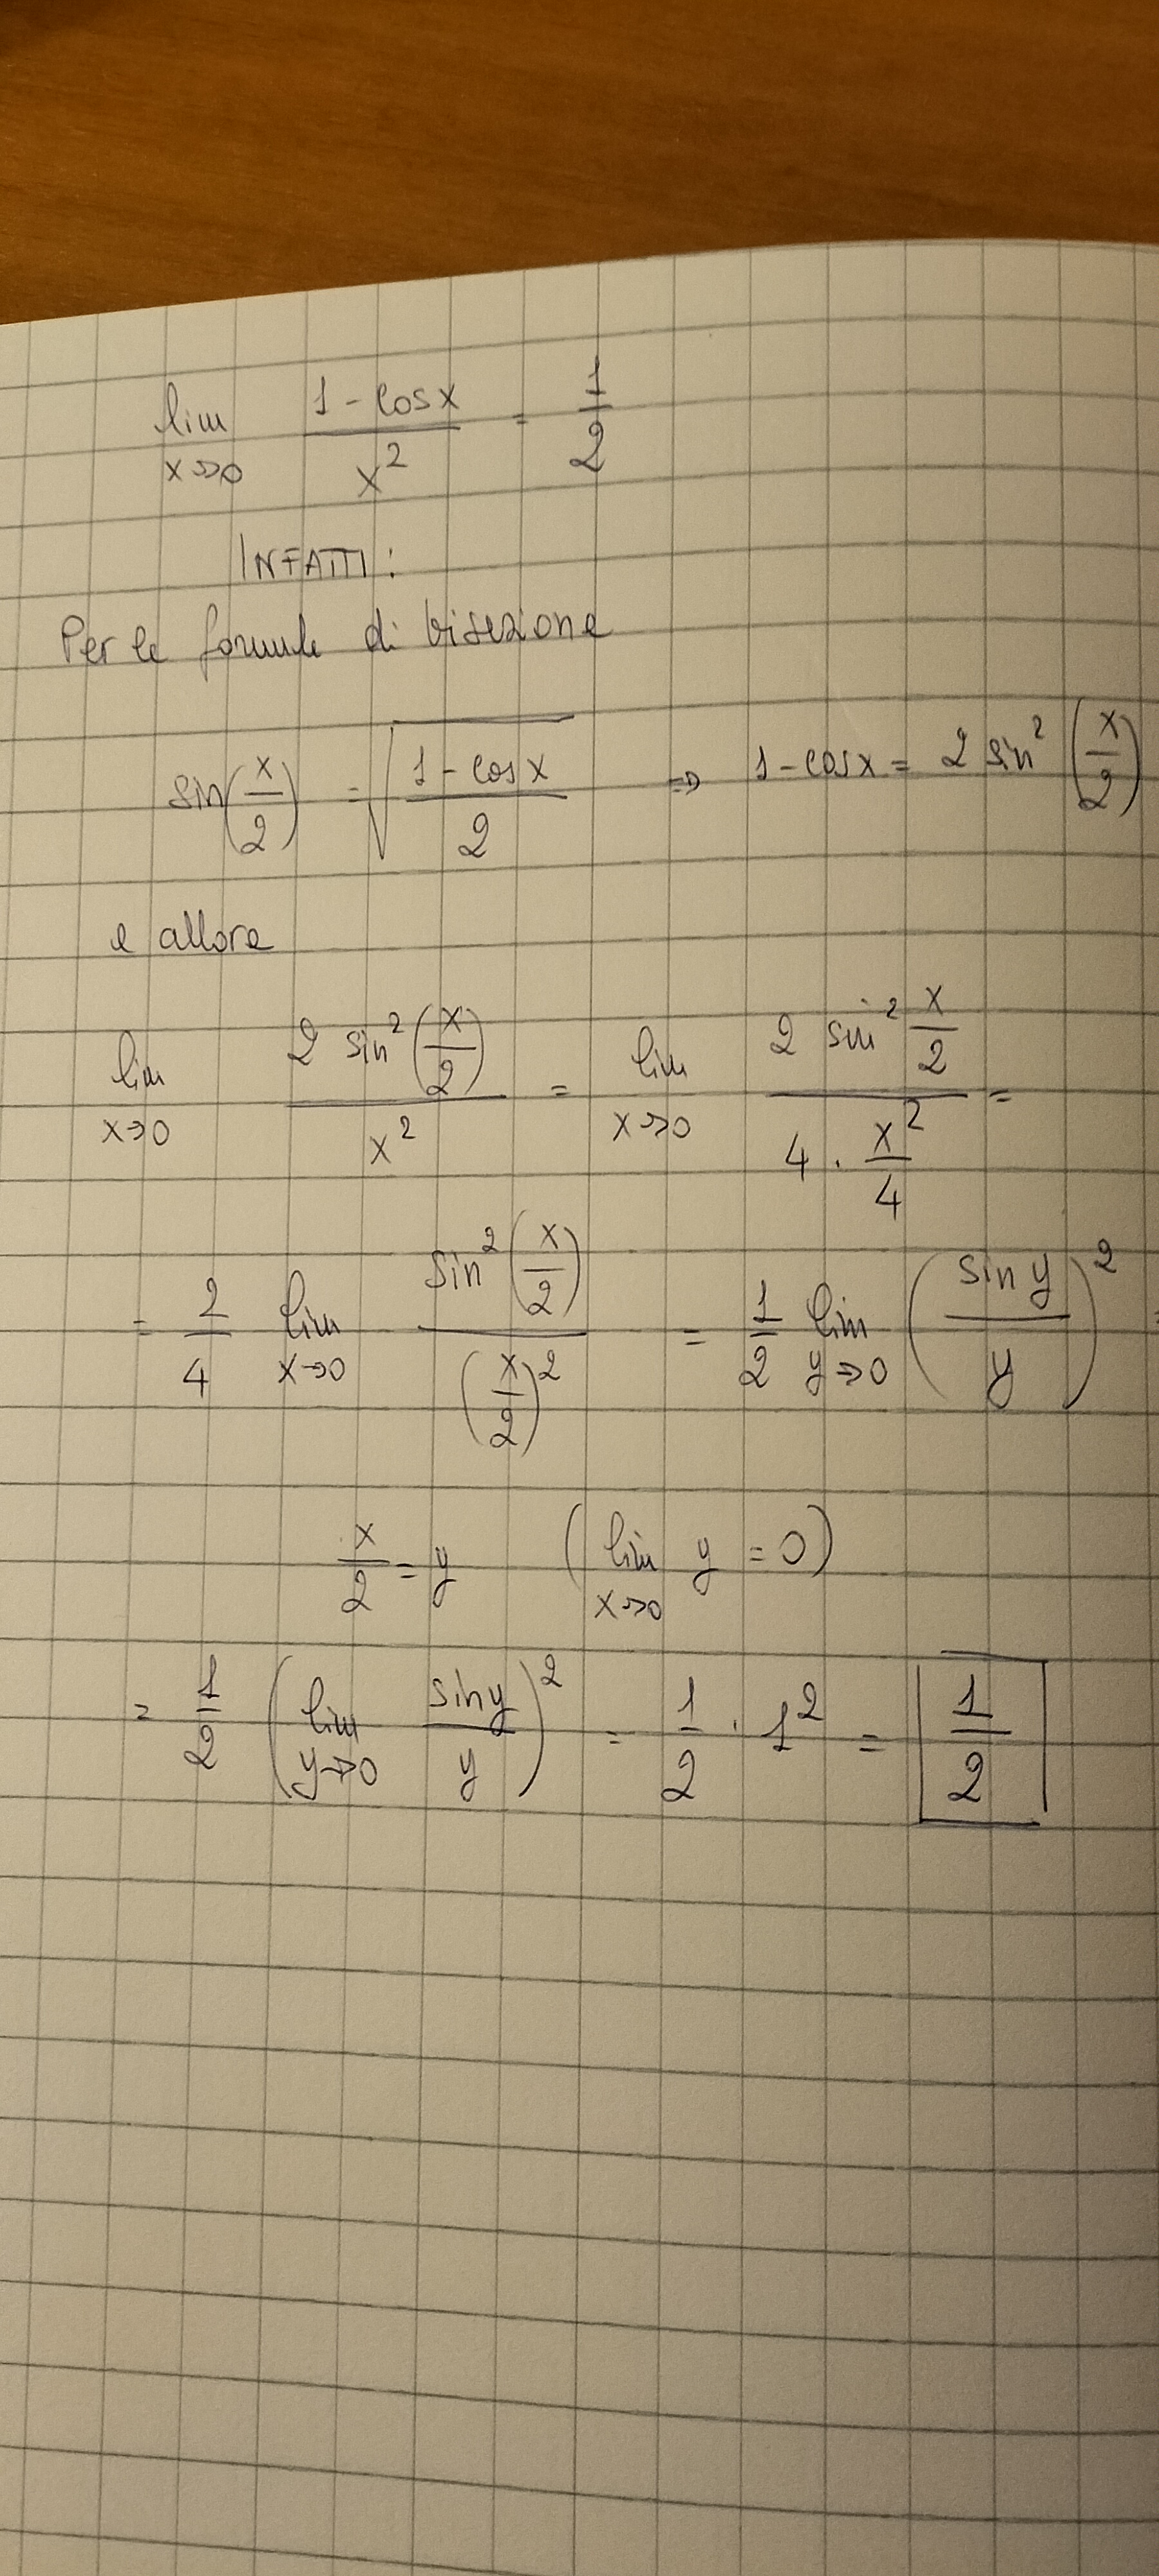 lim x→0 (1 - cos x)/x² = 1/2
INFATTI:
Per le formule di bisezione
sin(x/2) = √((1 - cos x)/2) ⇒ 1 - cos x = 2 sin²(x/2)
e allora
lim x→0 (2 sin²(x/2))/x² = lim x→0 (2 sin² x/2)/(4 · x²/4) =
= 2/4 lim x→0 sin²(x/2)/(x/2)² = 1/2 lim y→0 (sin y/y)² =
x/2 = y (lim x→0 y = 0)
= 1/2 (lim y→0 sin y/y)² = 1/2 · 1² = 1/2